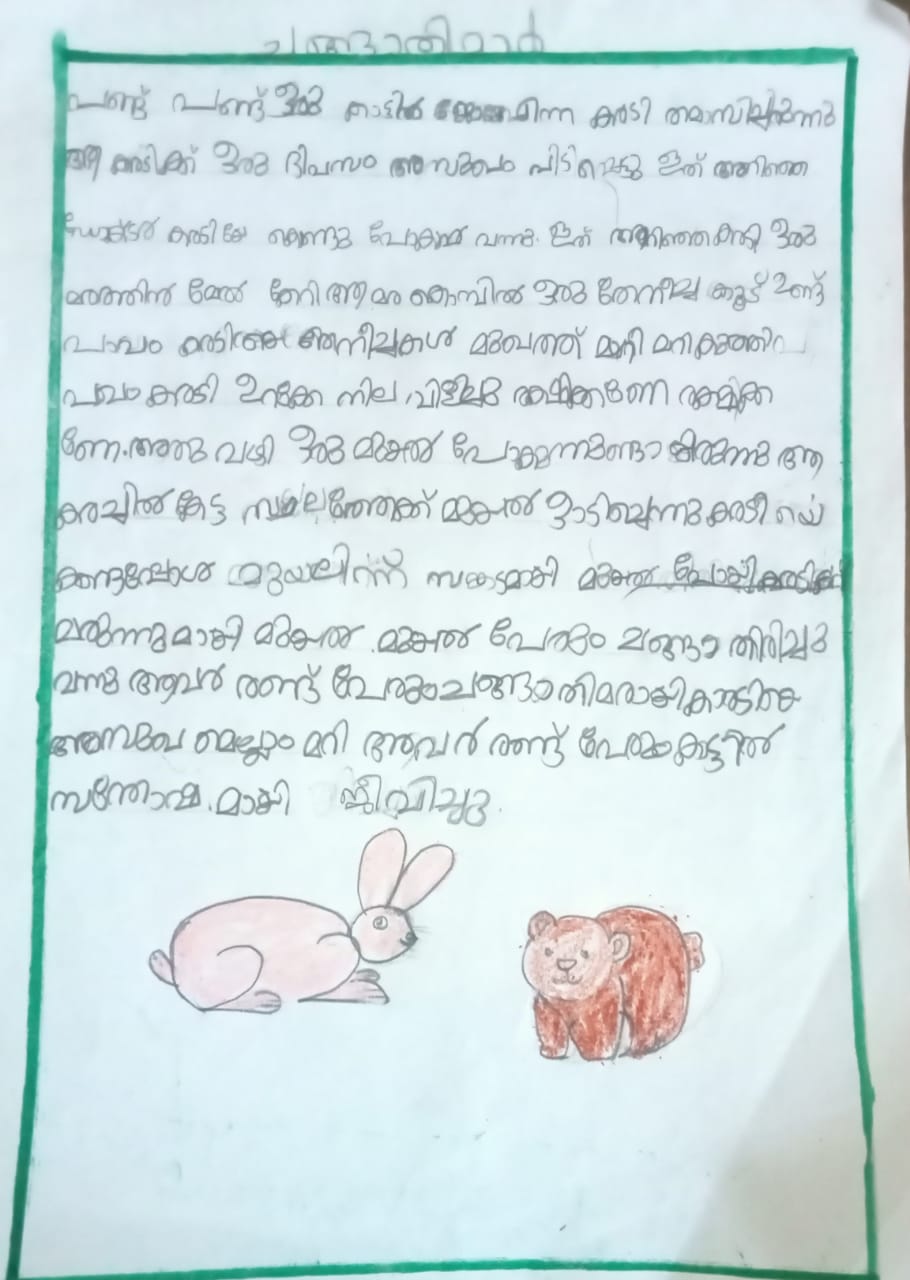 ചങ്ങാതിമാർ
പണ്ട് പണ്ട് ഒരു കാട്ടിൽ കരടി തമാസിച്ചിരുന്നു
ആ കരടിക്ക് ഒരു ദിപസം അസുഖം പിടിപ്പെട്ടു ഇത് അറിഞ്ഞ
ഡോക്ടർ കരടിയേ വന്നു. ഇത് അറിഞ്ഞ കരടി ഒരു
മരത്തിൻ മേൽ കേറി ആ മര കൊമ്പിൽ ഒരു തേനീച്ച കൂട് ഉണ്ട്
പാവം തേനീച്ചകൾ മുഖത്ത്
പാവം കരടി ഉറക്കേ നില വിളിച്ചു രക്ഷിക്കണേ രക്ഷിക്ക
ണേ. അതു വഴി ഒരു മുയൽ പോകുന്നുണ്ടായിരുന്നു ആ
കരച്ചിൽ കേട്ട സ്ഥലത്തേക്ക് മുയൽ ഓടിചെന്നു കരടി യെ
കണ്ടപ്പോൾ മുയലിന്ന് സങ്കടമായി മുയൽ പോയി കരടിക്ക്
മരുന്നുമായി മുയൽ മുയൽ പേരും ചങ്ങാ തിരിച്ചു
വന്നു അവർ രണ്ട് പേരും ചങ്ങാതിമരായി കരടിടെ
അസുഖ മെല്ലാം മറി അവർ രണ്ട് പേരും കാട്ടിൽ
സന്തോഷ മായി ജീവിച്ചു.